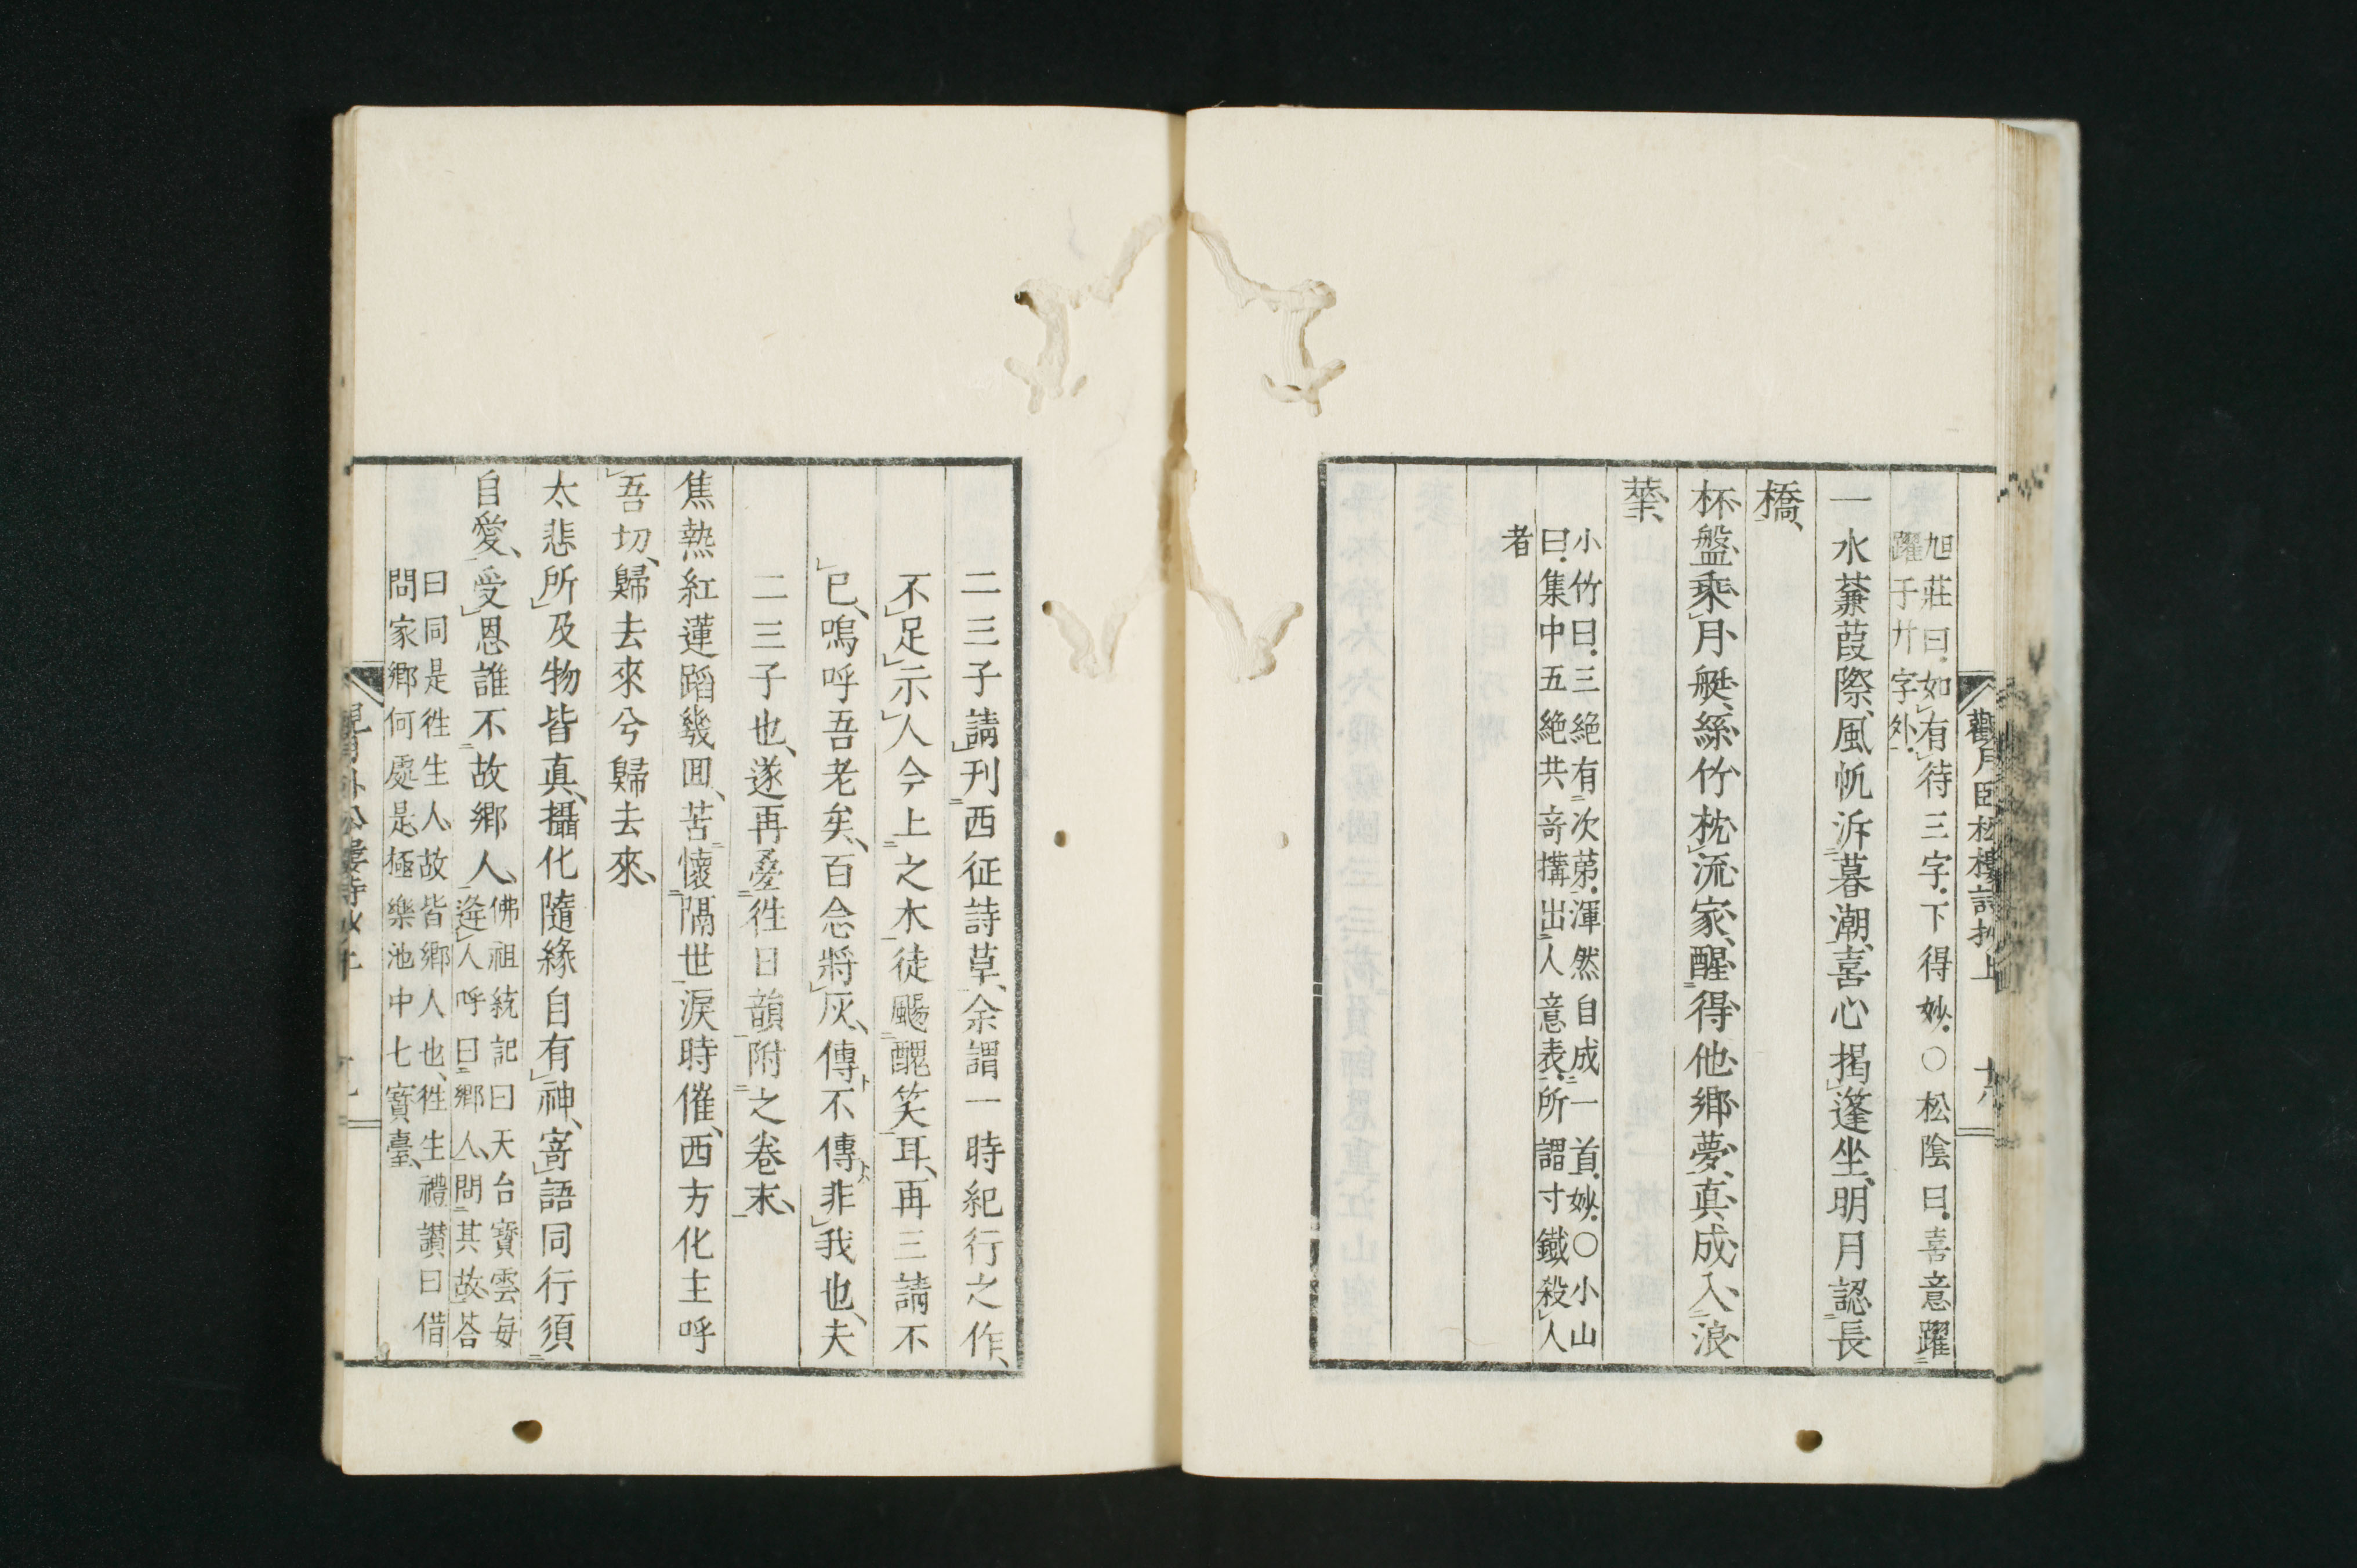 旭莊曰如有待三字下得妙〇松陰曰喜意躍
躍于廾字外
一水蒹葭際風帆泝暮潮喜心揭篷坐明月認長
橋
杯盤乘月艇絲竹枕流家醒得他鄉夢真成入浪
華
小竹曰三絕有次第渾然自成一首妙〇小山
曰集中五絕共奇搆出人意表所謂寸鐵殺人
者
觀月臥松樓詩抄上 十八
二三子請刊西征詩草余謂一時紀行之作
不足示人今上之木徒颺醜笑耳再三請不
已嗚呼吾老矣百念將灰傳不傳非我也夫
二三子也遂再疊徃日韻附之卷末
焦熱紅蓮蹈幾囬苦懷隔世淚時催西方化主呼
吾切歸去來兮歸去來
太悲所及物皆真攝化隨緣自有神寄語同行須
自愛受恩誰不故鄉人
佛祖統記曰天台寶雲每
逄人呼曰鄉人問其故荅
曰同是徃生人故皆鄉人也徃生禮讃曰借
問家鄉何處是極樂池中七寶臺